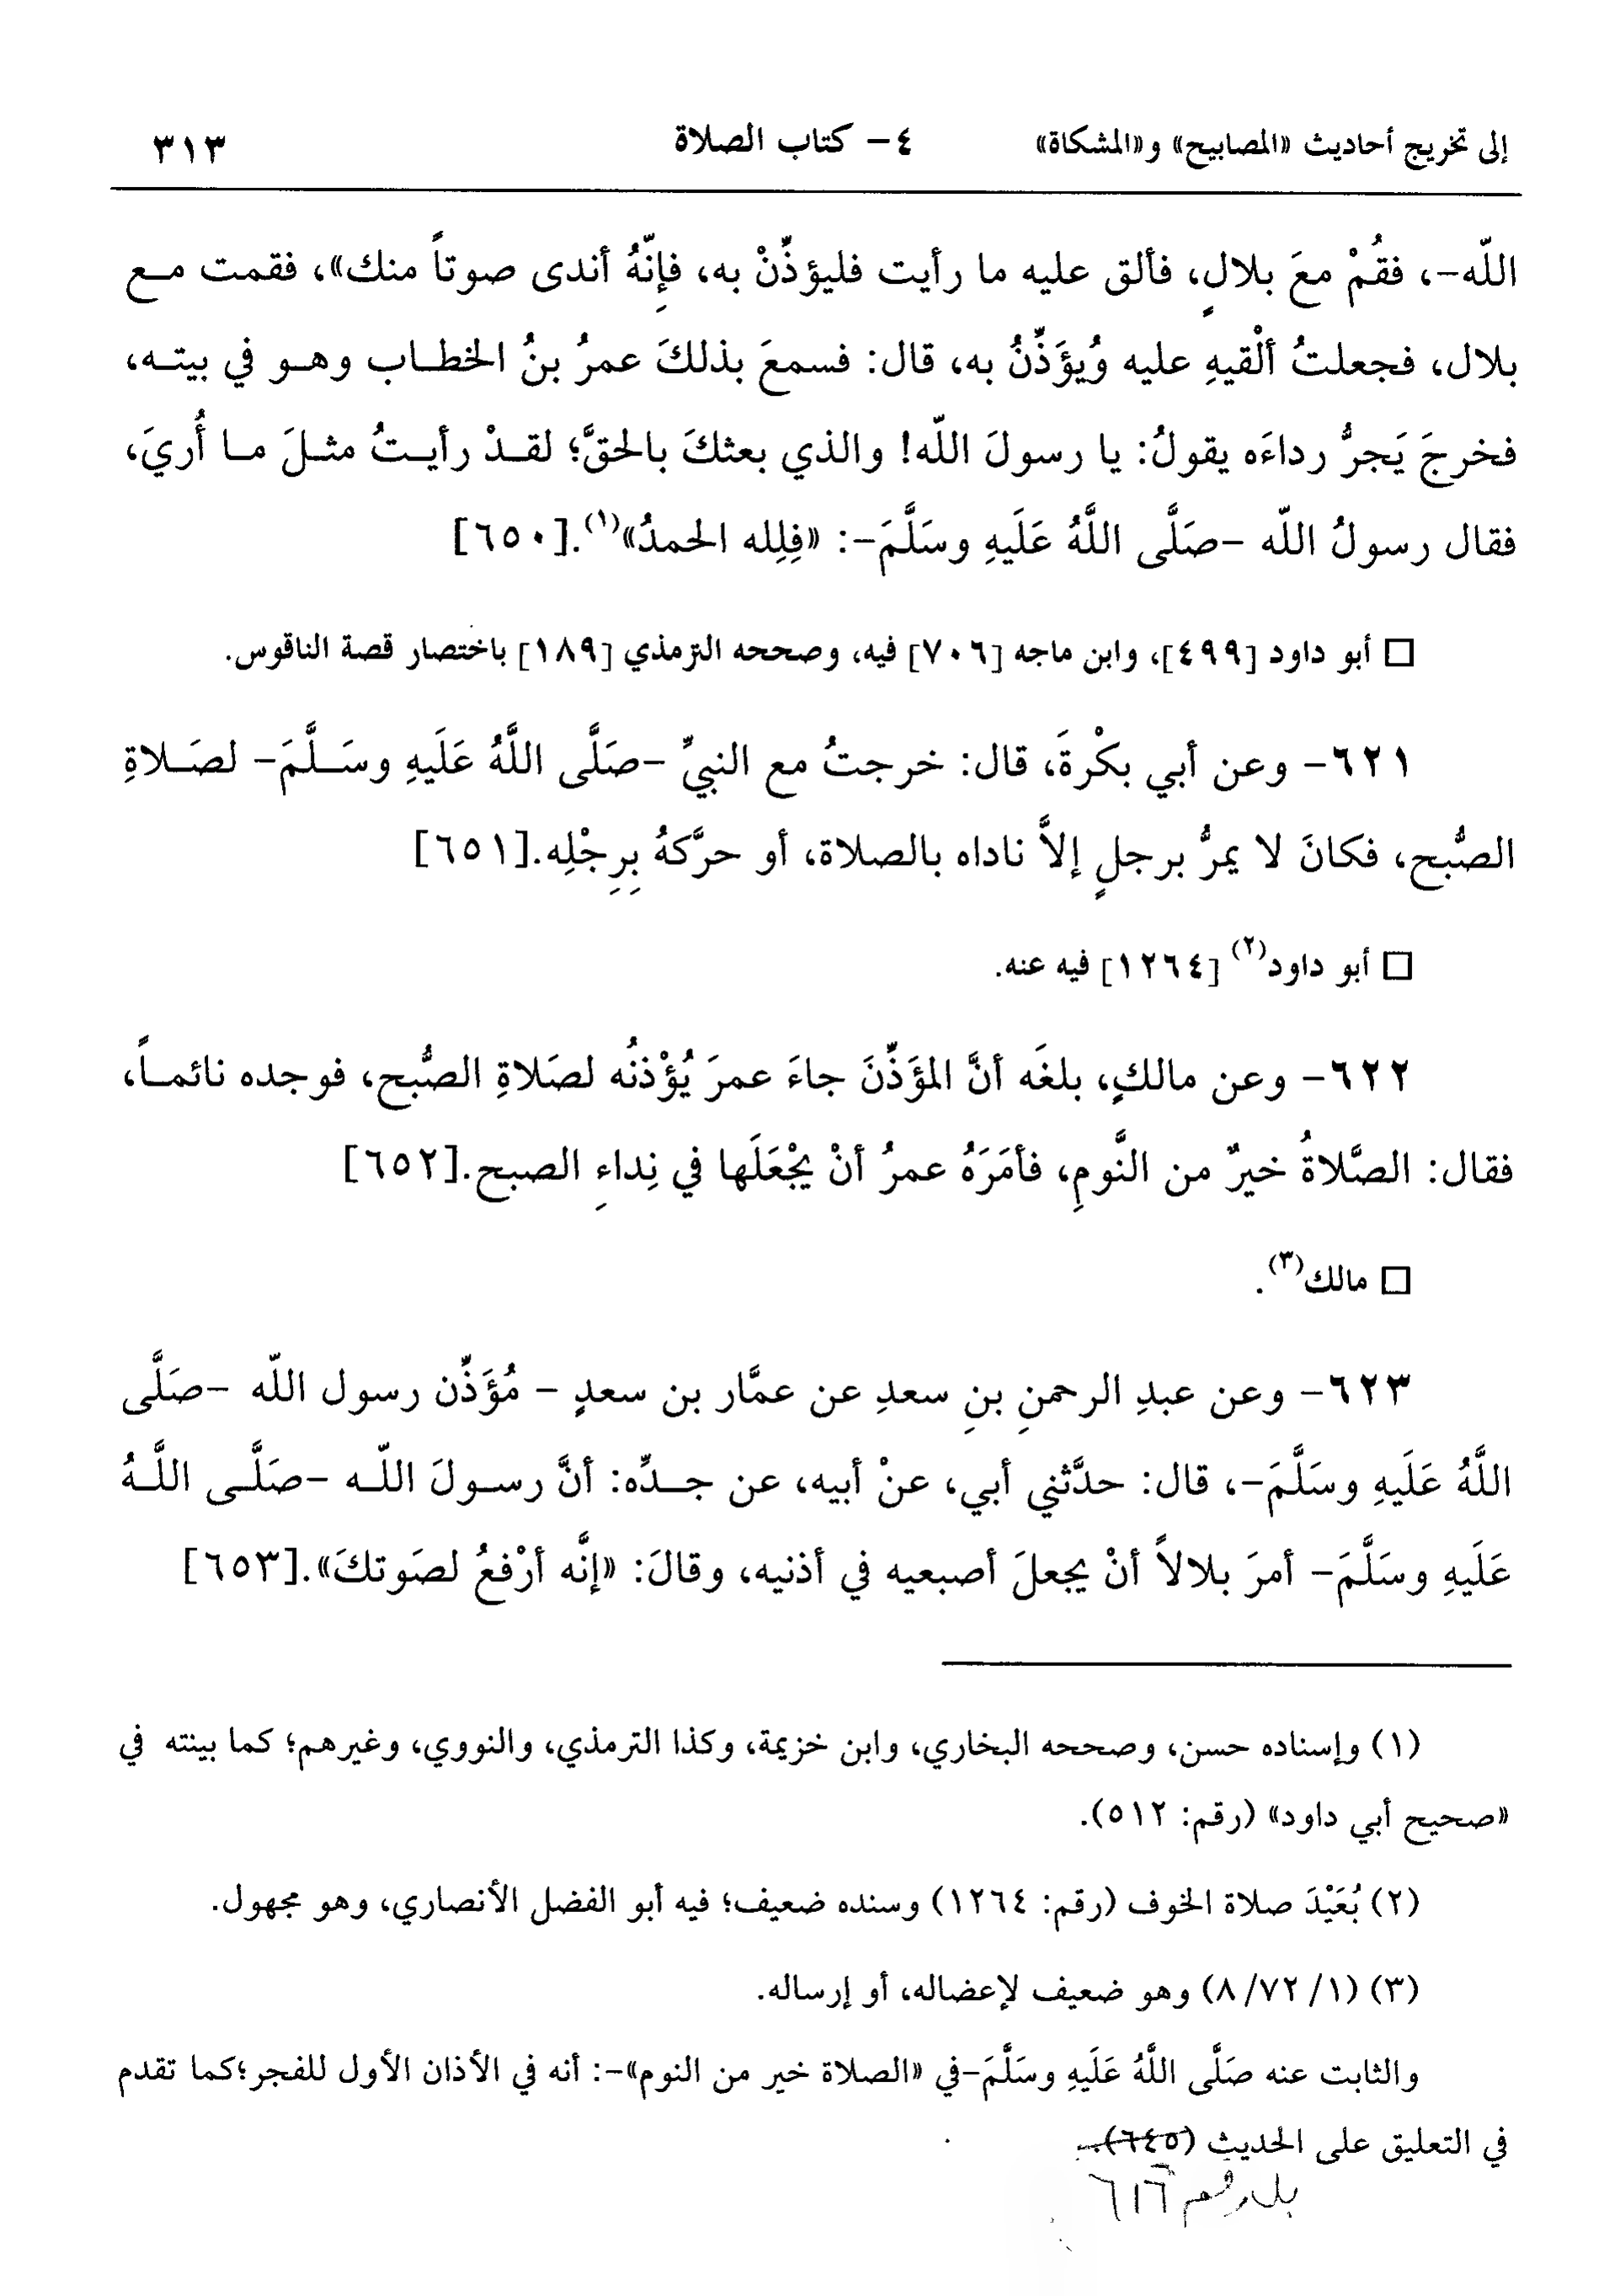 إلى تخريج أحاديث «المصابيح» و«المشكاة» ٤- كتاب الصلاة ٣١٣
اللّه-، فقُمْ معَ بلالٍ، فألق عليه ما رأيت فليؤذِّنْ به، فإِنّهُ أندى صوتاً منك»، فقمت مـع
بلال، فجعلتُ ألْقيهِ عليه وُيؤَذِّنُ به، قال: فسمعَ بذلكَ عمرُ بنُ الخطـاب وهـو في بيتـه،
فخرجَ يَجرُّ رداءَه يقولُ: يا رسولَ اللّه! والذي بعثكَ بالحقَّ؛ لقـدْ رأيـتُ مثـلَ مـا أُريَ،
فقال رسولُ اللّه -صَلَّى اللَّهُ عَلَيهِ وسَلَّمَ-: «فِلِله الحمدُ»(١).[٦٥٠]
□ أبو داود [٤٩٩]، وابن ماجه [٧٠٦] فيه، وصححه الترمذي [١٨٩] باختصار قصة الناقوس.
٦٢١- وعن أبي بكْرةَ، قال: خرجتُ مع النبيِّ -صَلَّى اللَّهُ عَلَيهِ وسَـلَّمَ- لصَـلاةِ
الصُّبح، فكانَ لا يمرُّ برجلٍ إلاَّ ناداه بالصلاة، أو حرَّكهُ بِرِجْلِه.[٦٥١]
□ أبو داود(٢) [١٢٦٤] فيه عنه.
٦٢٢- وعن مالكٍ، بلغَه أنَّ المؤَذِّنَ جاءَ عمرَ يُؤْذنُه لصَلاةِ الصُّبح، فوجده نائمـاً،
فقال: الصَّلاةُ خيرٌ من النَّومِ، فأمَرَهُ عمرُ أنْ يجْعَلَها في نِداءِ الصبح.[٦٥٢]
□ مالك(٣).
٦٢٣- وعن عبدِ الرحمنِ بنِ سعدِ عن عمَّار بن سعدٍ - مُؤَذِّن رسول اللّه -صَلَّى
اللَّهُ عَلَيهِ وسَلَّمَ-، قال: حدَّثني أبي، عنْ أبيه، عن جـدِّه: أنَّ رسـولَ اللّـه -صَلَّـى اللَّـهُ
عَلَيهِ وسَلَّمَ- أمرَ بلالاً أنْ يجعلَ أصبعيه في أذنيه، وقالَ: «إنَّه أرْفعُ لصَوتكَ».[٦٥٣]
(١) وإسناده حسن، وصححه البخاري، وابن خزيمة، وكذا الترمذي، والنووي، وغيرهم؛ كما بينته في
«صحيح أبي داود» (رقم: ٥١٢).
(٢) بُعَيْدَ صلاة الخوف (رقم: ١٢٦٤) وسنده ضعيف؛ فيه أبو الفضل الأنصاري، وهو مجهول.
(٣) (١/ ٧٢/ ٨) وهو ضعيف لإعضاله، أو إرساله.
والثابت عنه صَلَّى اللَّهُ عَلَيهِ وسَلَّمَ-في «الصلاة خير من النوم»-: أنه في الأذان الأول للفجر؛كما تقدم
في التعليق على الحديث (٦٤٥).
بل رقم ٦١٦